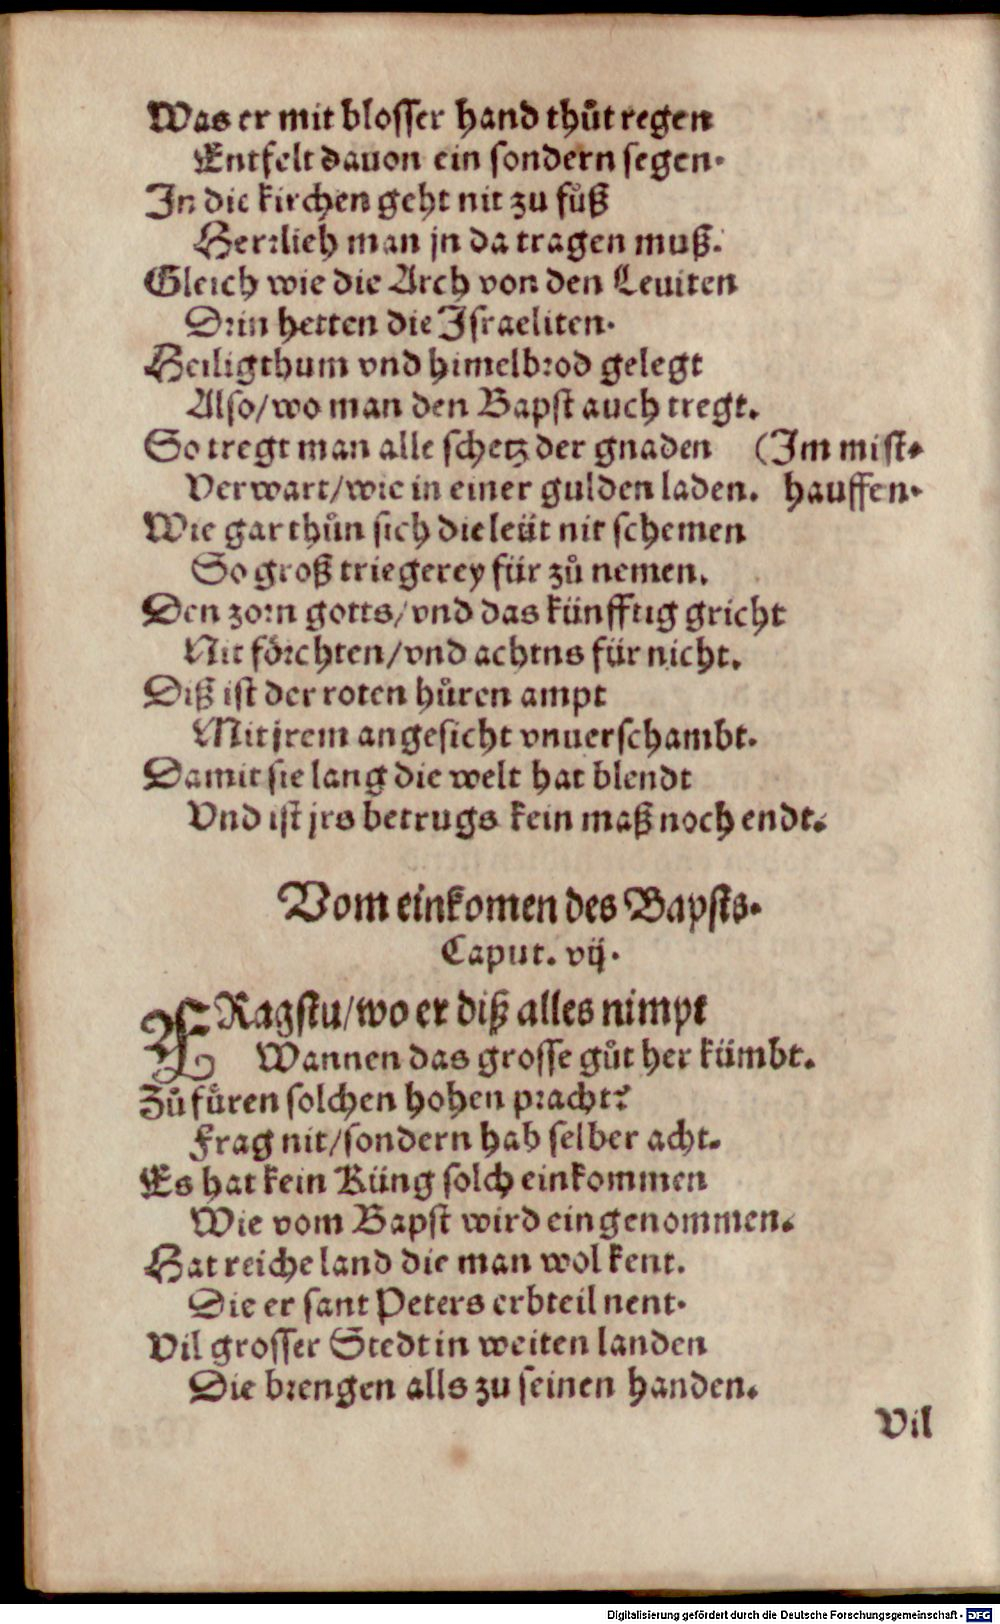 Was er mit blosser hand thůt regen
Entfelt dauon ein sondern segen.
In die kirchen geht nit zu fůß
Herrlich man jn da tragen muß.
Gleich wie die Arch von den Leuiten
Drin hetten die Israeliten.
Heiligthum vnd himelbrod gelegt
Also/wo man den Bapst auch tregt.
So tregt man alle schetz der gnaden (Im mist-
Verwart/wie in einer gulden laden. hauffen.
Wie gar thůn sich die leüt nit schemen
So groß triegerey für zů nemen.
Den zorn gotts/vnd das künfftig gricht
Nit förchten/vnd achtns für nicht.
Diß ist der roten hůren ampt
Mit jrem angesicht vnuerschambt.
Damit sie lang die welt hat blendt
Vnd ist jrs betrugs kein maß noch endt.
Vom einkomen des Bapsts.
Caput. vij.
FRagstu/wo er diß alles nimpt
Wannen das grosse gůt her kümbt.
Zů fůren solchen hohen pracht?
Frag nit/sondern hab selber acht.
Es hat kein Küng solch einkommen
Wie vom Bapst wird eingenommen.
Hat reiche land die man wol kent.
Die er sant Peters erbteil nent.
Vil grosser Stedt in weiten landen
Die brengen alls zu seinen handen.
Vil
Digitalisierung gefördert durch die Deutsche Forschungsgemeinschaft - DFG